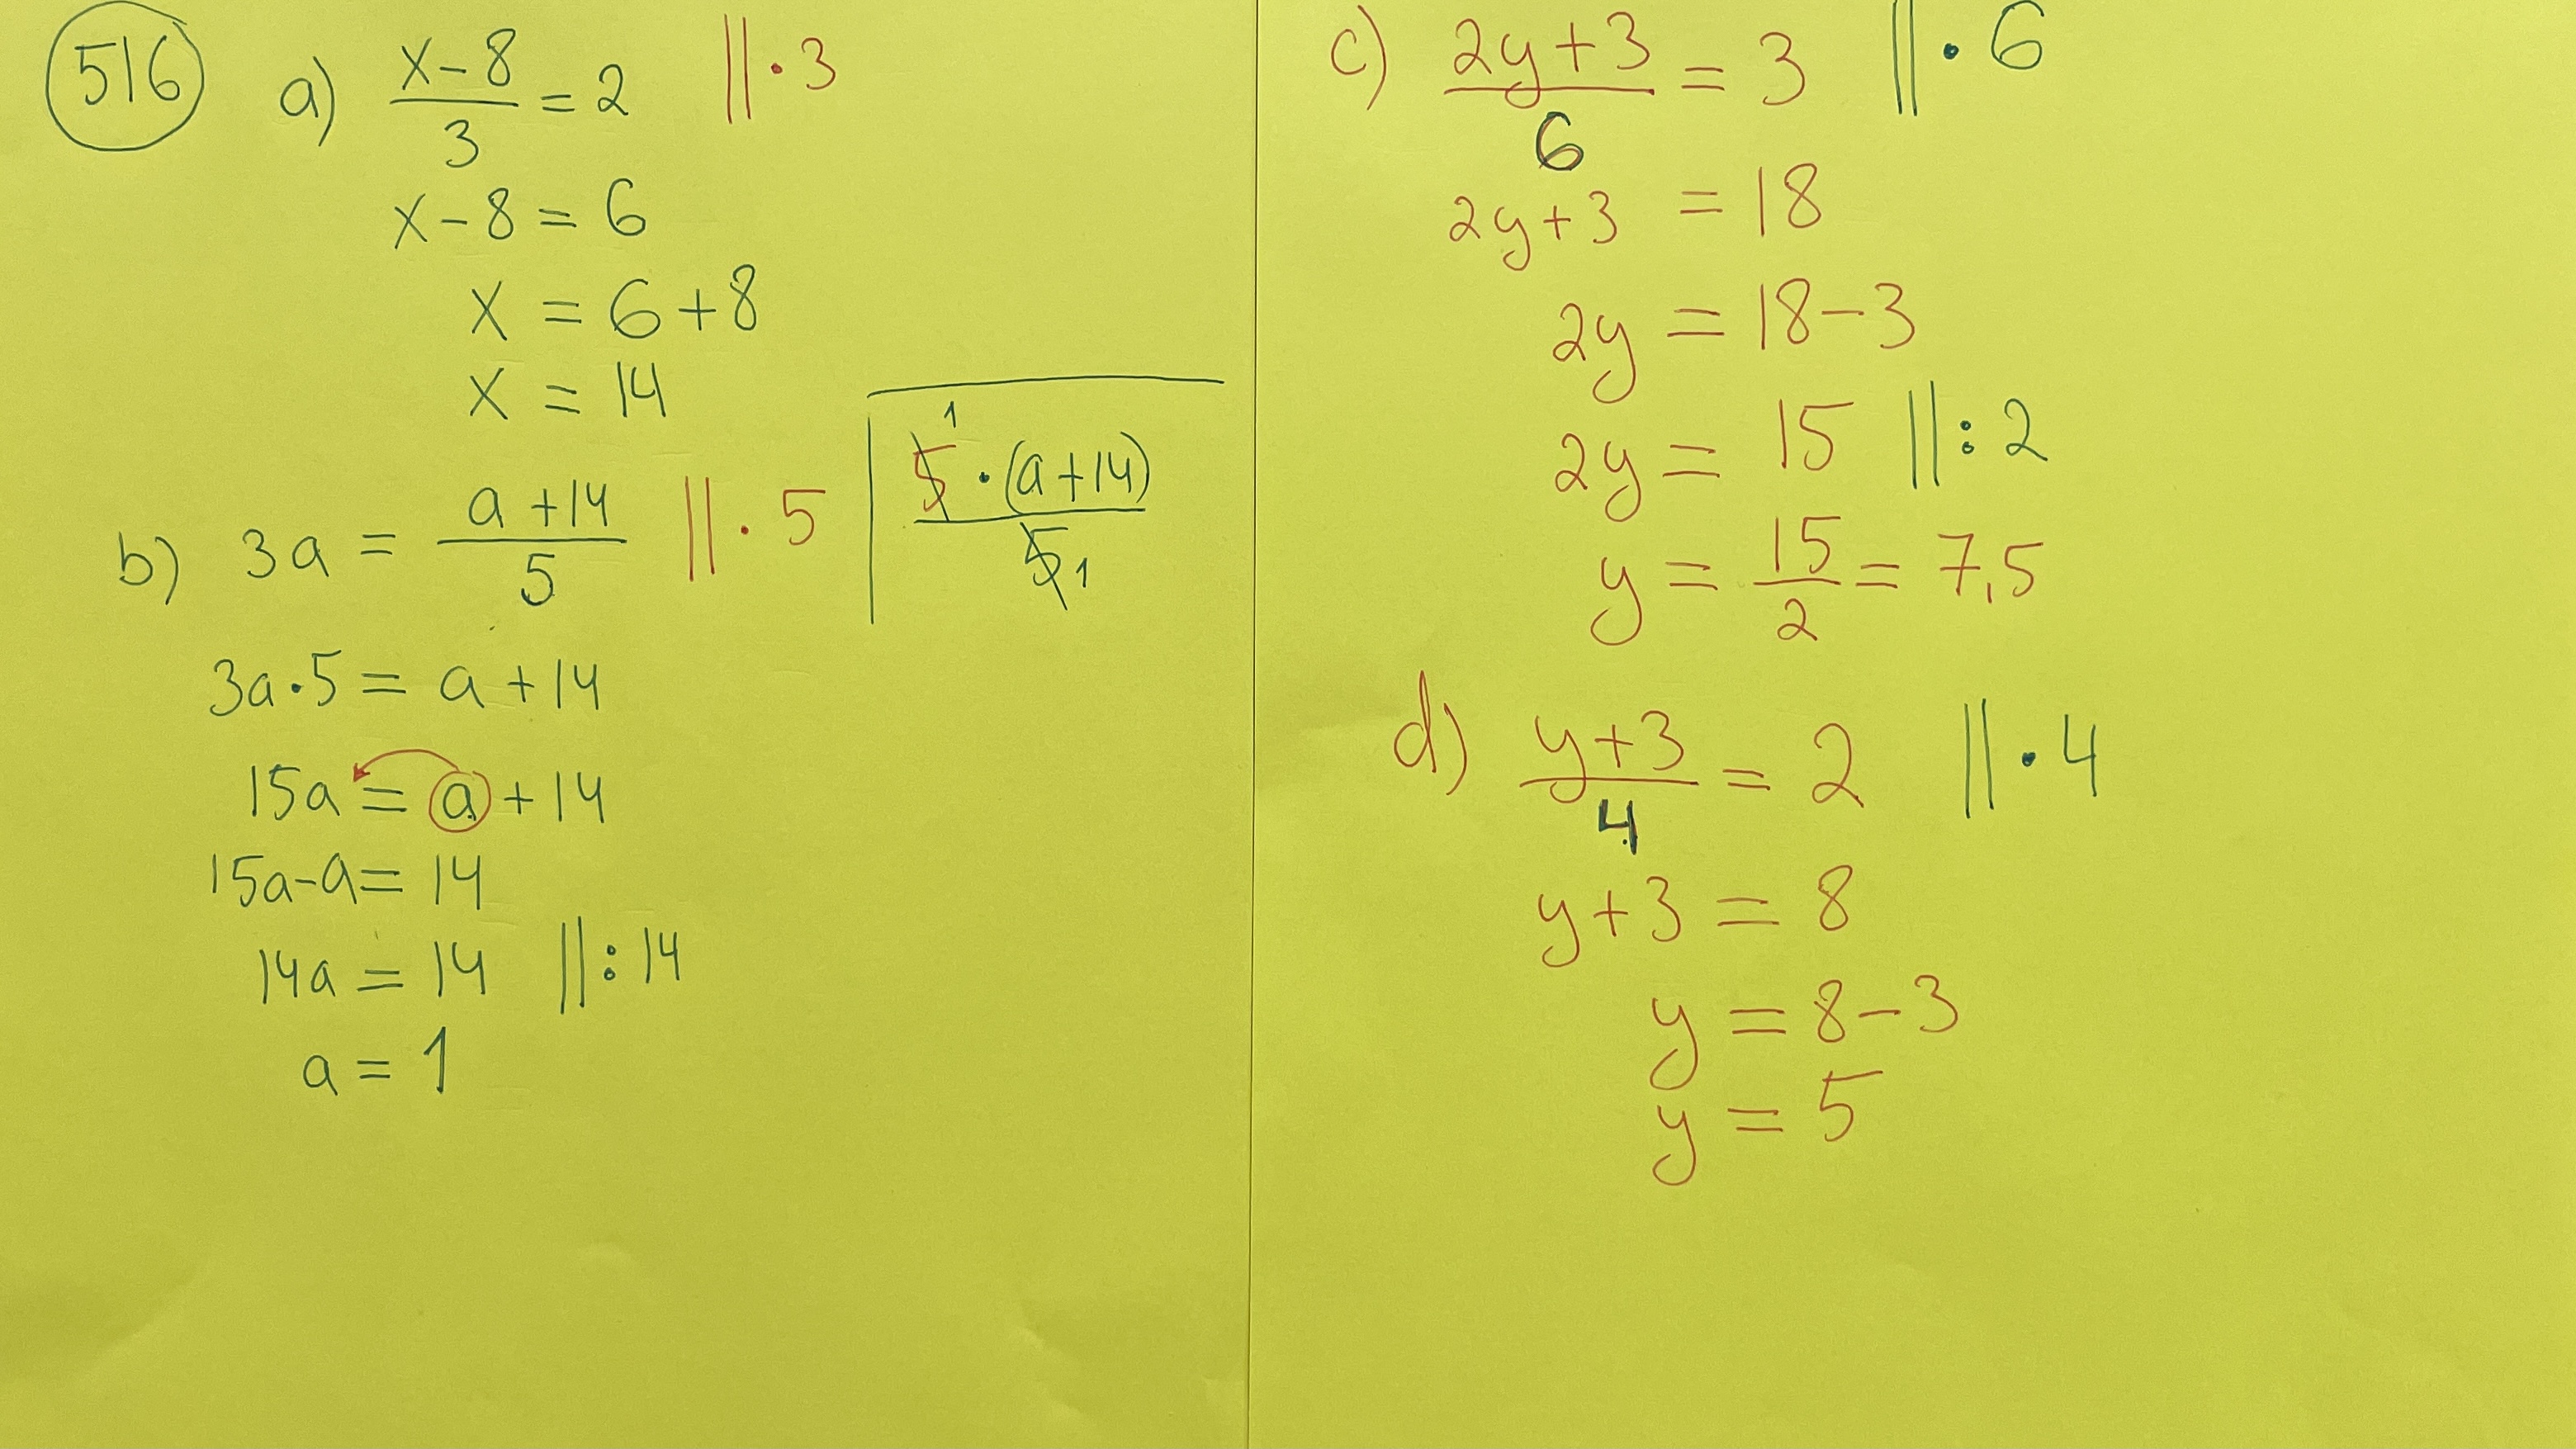 516 a) (x-8)/3 = 2 || · 3
x-8 = 6
x = 6+8
x = 14
b) 3a = (a+14)/5 || · 5
5^1 · (a+14) / 5_1
3a·5 = a+14
15a = a+14
15a-a = 14
14a = 14 || : 14
a = 1
c) (2y+3)/6 = 3 || · 6
2y+3 = 18
2y = 18-3
2y = 15 || : 2
y = 15/2 = 7,5
d) (y+3)/4 = 2 || · 4
y+3 = 8
y = 8-3
y = 5